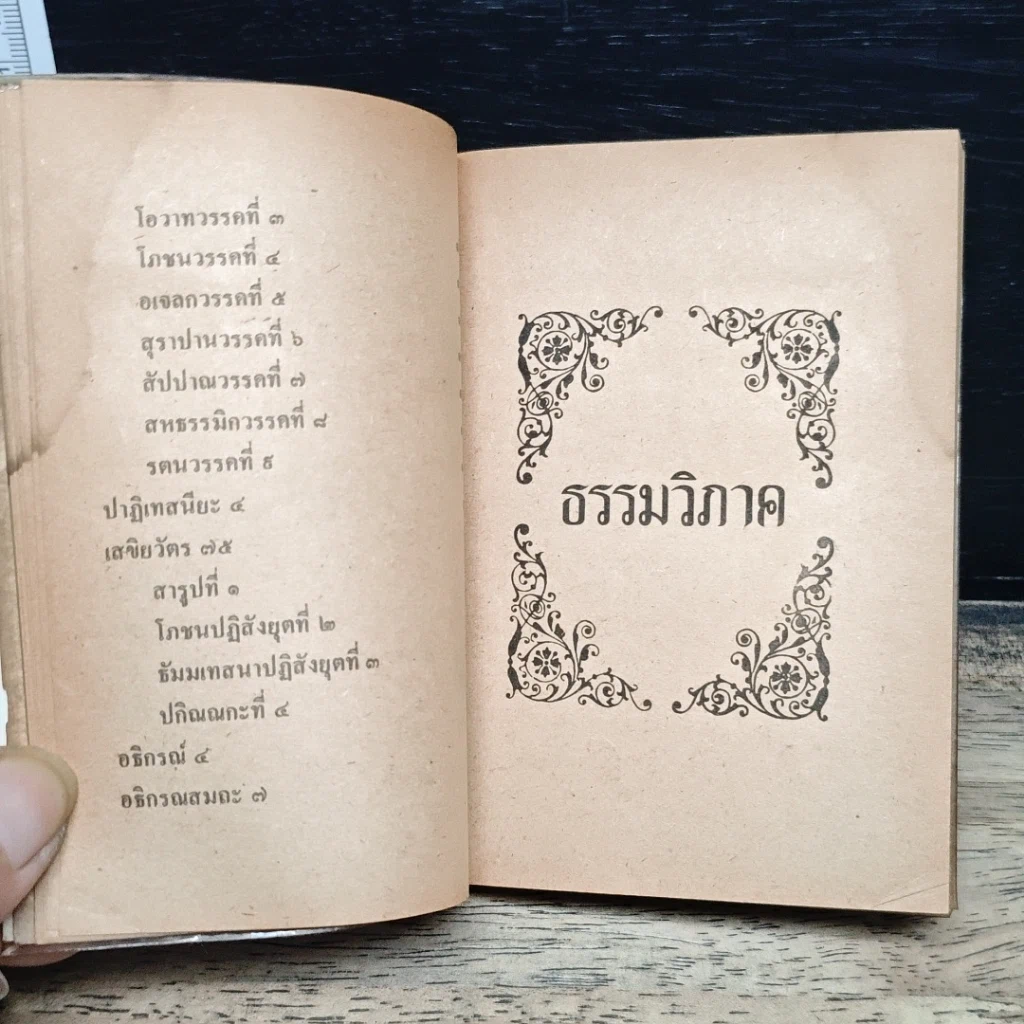 โอวาทวรรคที่ ๓
โภชนวรรคที่ ๔
อเจลกวรรคที่ ๕
สุราปานวรรคที่ ๖
สัปปาณวรรคที่ ๗
สหธรรมิกวรรคที่ ๘
รตนวรรคที่ ๙
ปาฏิเทสนียะ ๔
เสขิยวัตร ๗๕
สารูปที่ ๑
โภชนปฏิสังยุตที่ ๒
ธัมมเทสนาปฏิสังยุตที่ ๓
ปกิณณกะที่ ๔
อธิกรณ์ ๔
อธิกรณสมถะ ๗
ธรรมวิภาค